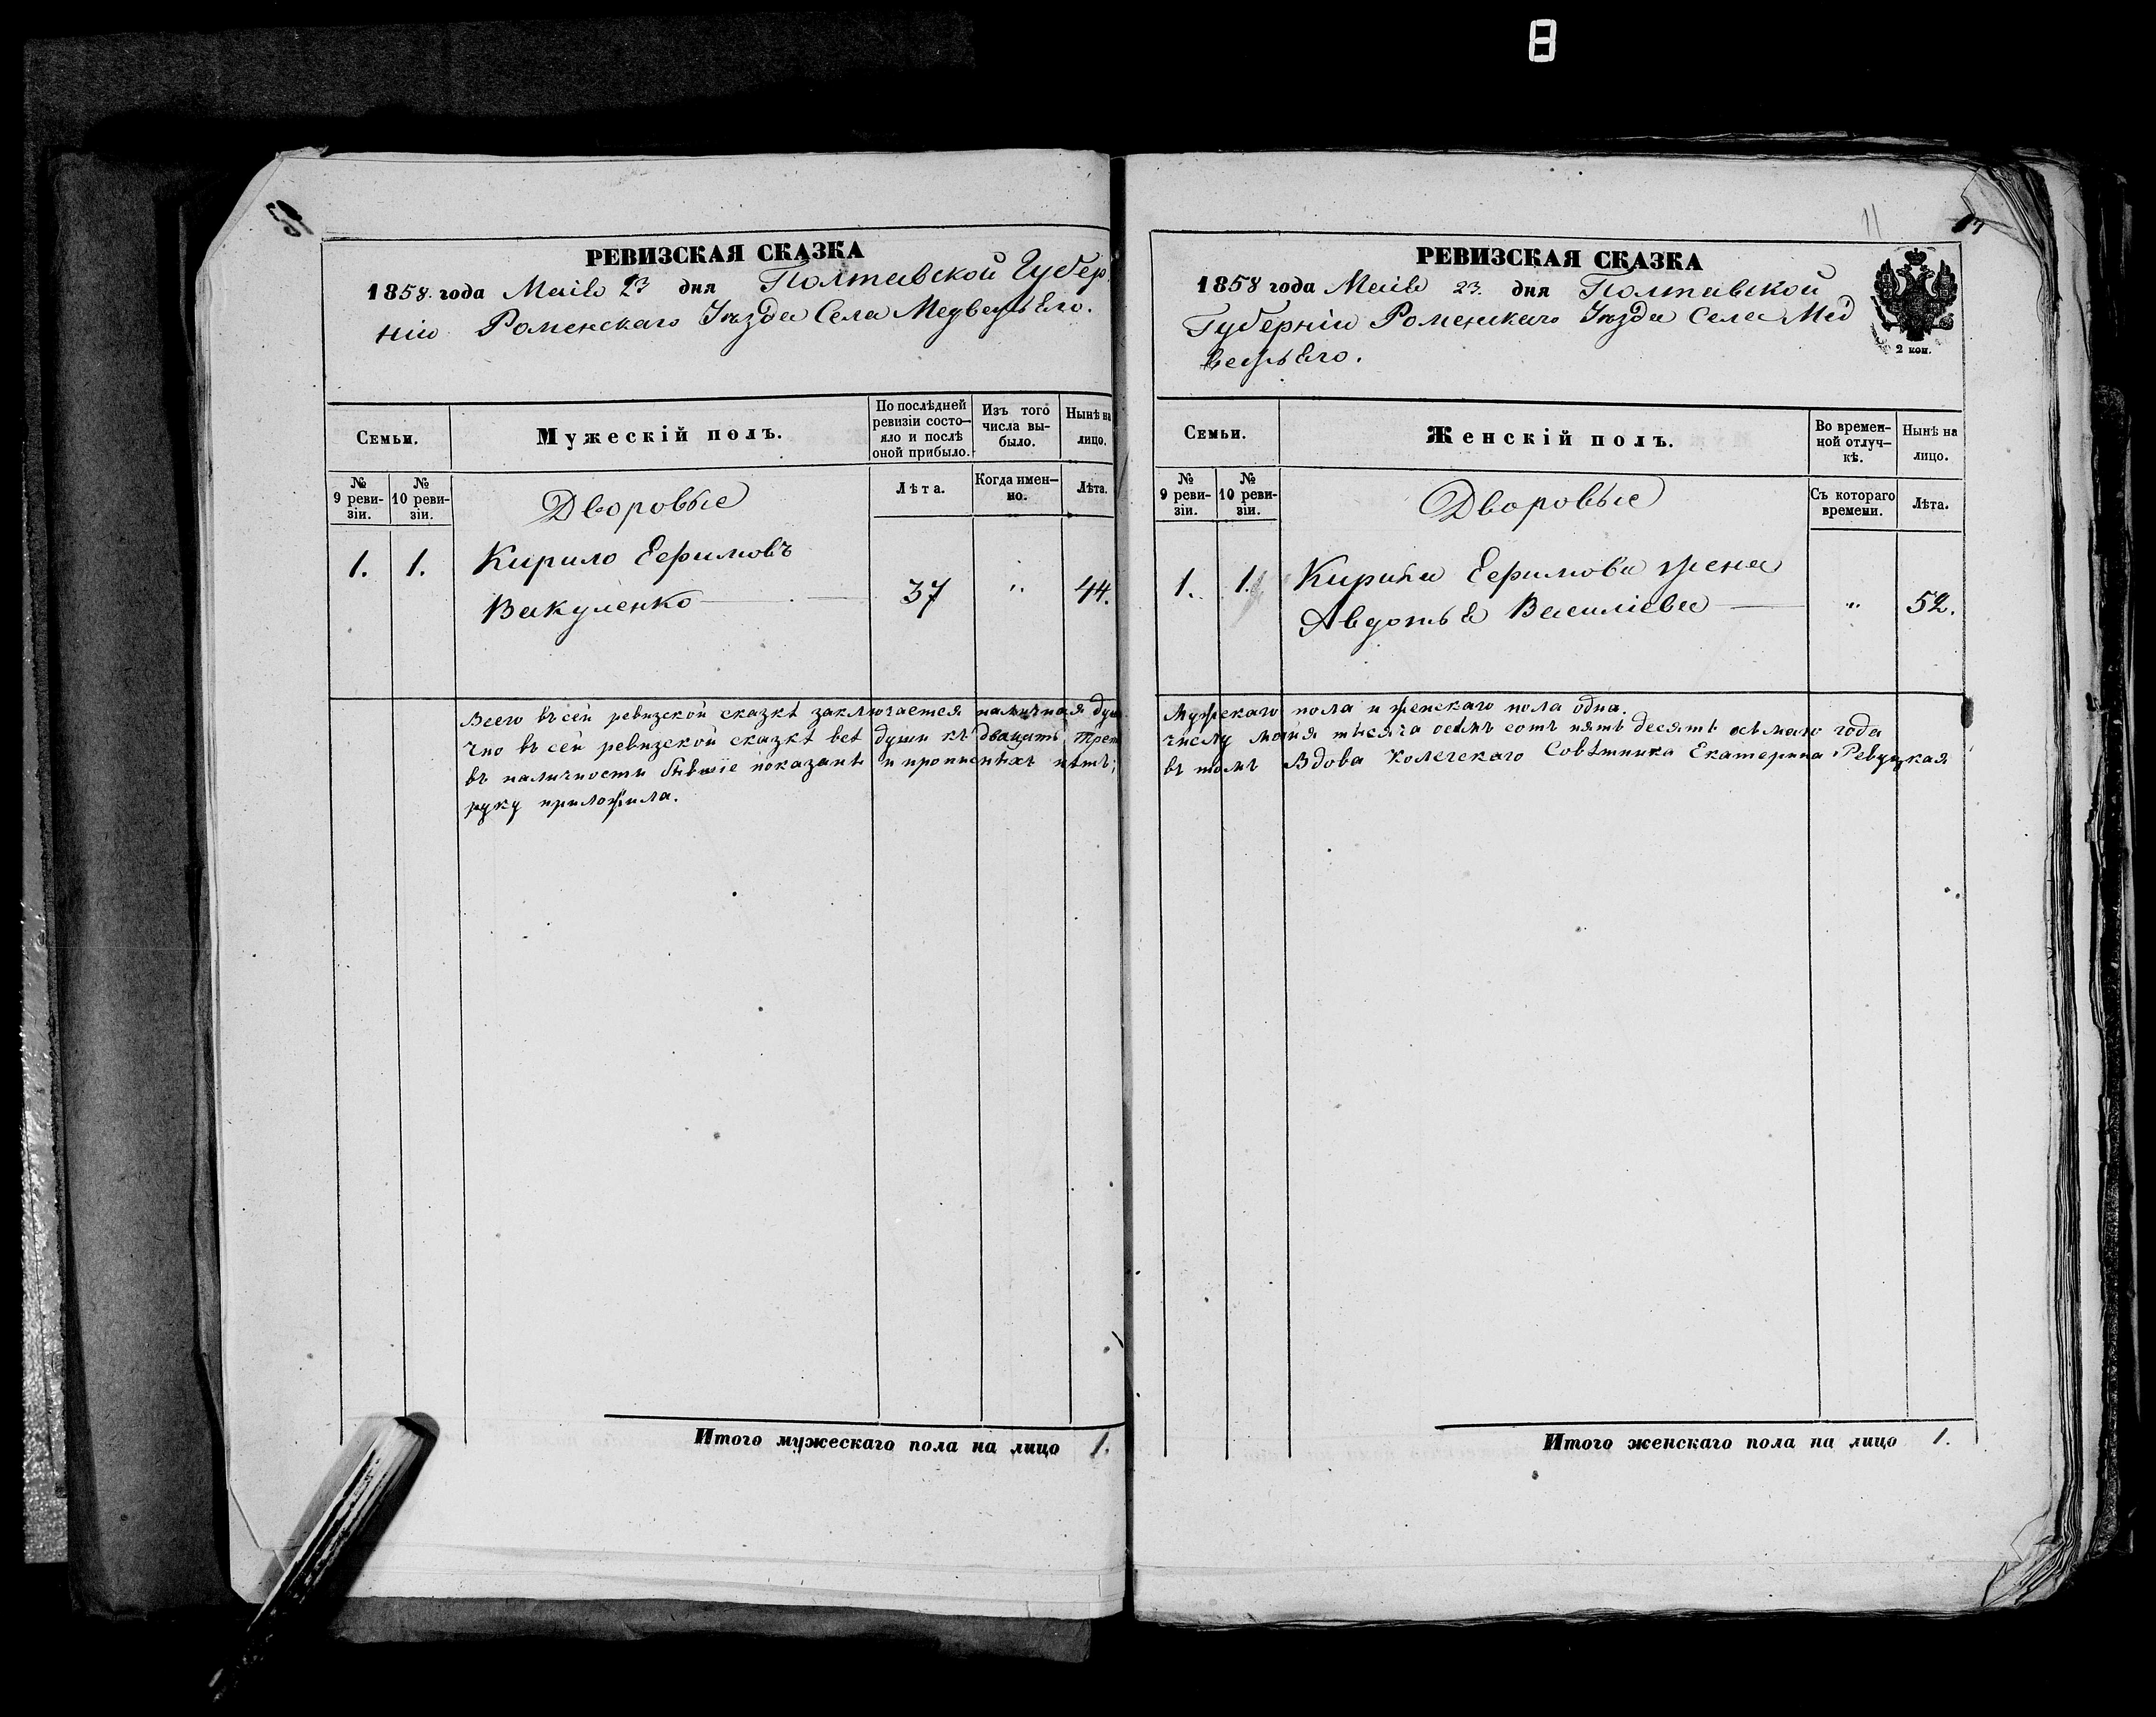 РЕВИЗСКАЯ СКАЗКА
1858. года Маія 23 дня Полтавской Губер
ніи Роменскаго Уѣзда Села Медвежьего.
Семьи.
Мужескій полъ.
По послѣдней ревизіи состо—яло и послѣ оной прибыло.
Изъ того числа вы-было.
Нынѣ на лицо.
№ 9 реви-зіи.
№ 10 реви-зіи.
Лѣта.
Когда имен-но.
Лѣта.
Дворовые
1. 1. Кирило Ефимовъ
Вакуленко — 37 " 44.
Всего въ сей ревизской сказкѣ заключается наличная душ
что въ сей ревизской сказкѣ всѣ души къ двацять трет
въ наличности бывшіе показаны и прописныхъ нѣтъ;
руку приложила.
Итого мужескаго пола на лицо 1.
11
РЕВИЗСКАЯ СКАЗКА
1858 года Маія 23. дня Полтавской
Губерніи Роменскаго Уѣзда Села Мед
вежьего.
2 коп.
Семьи.
Женскій полъ.
Во времен-ной отлуч—кѣ.
Нынѣ на лицо.
№ 9 реви-зіи.
№ 10 реви-зіи.
Съ котораго времени.
Лѣта.
Дворовые
1. 1. Кирила Ефимова жена
Авдотья Васильева — " 52.
Мужскаго пола и женскаго пола одна.
числу мая тысяча осѣмъ сотъ пять десятъ осьмаго года
въ томъ Вдова Колегскаго Совѣтника Екатерина Ревуцкая
Итого женскаго пола на лицо 1.